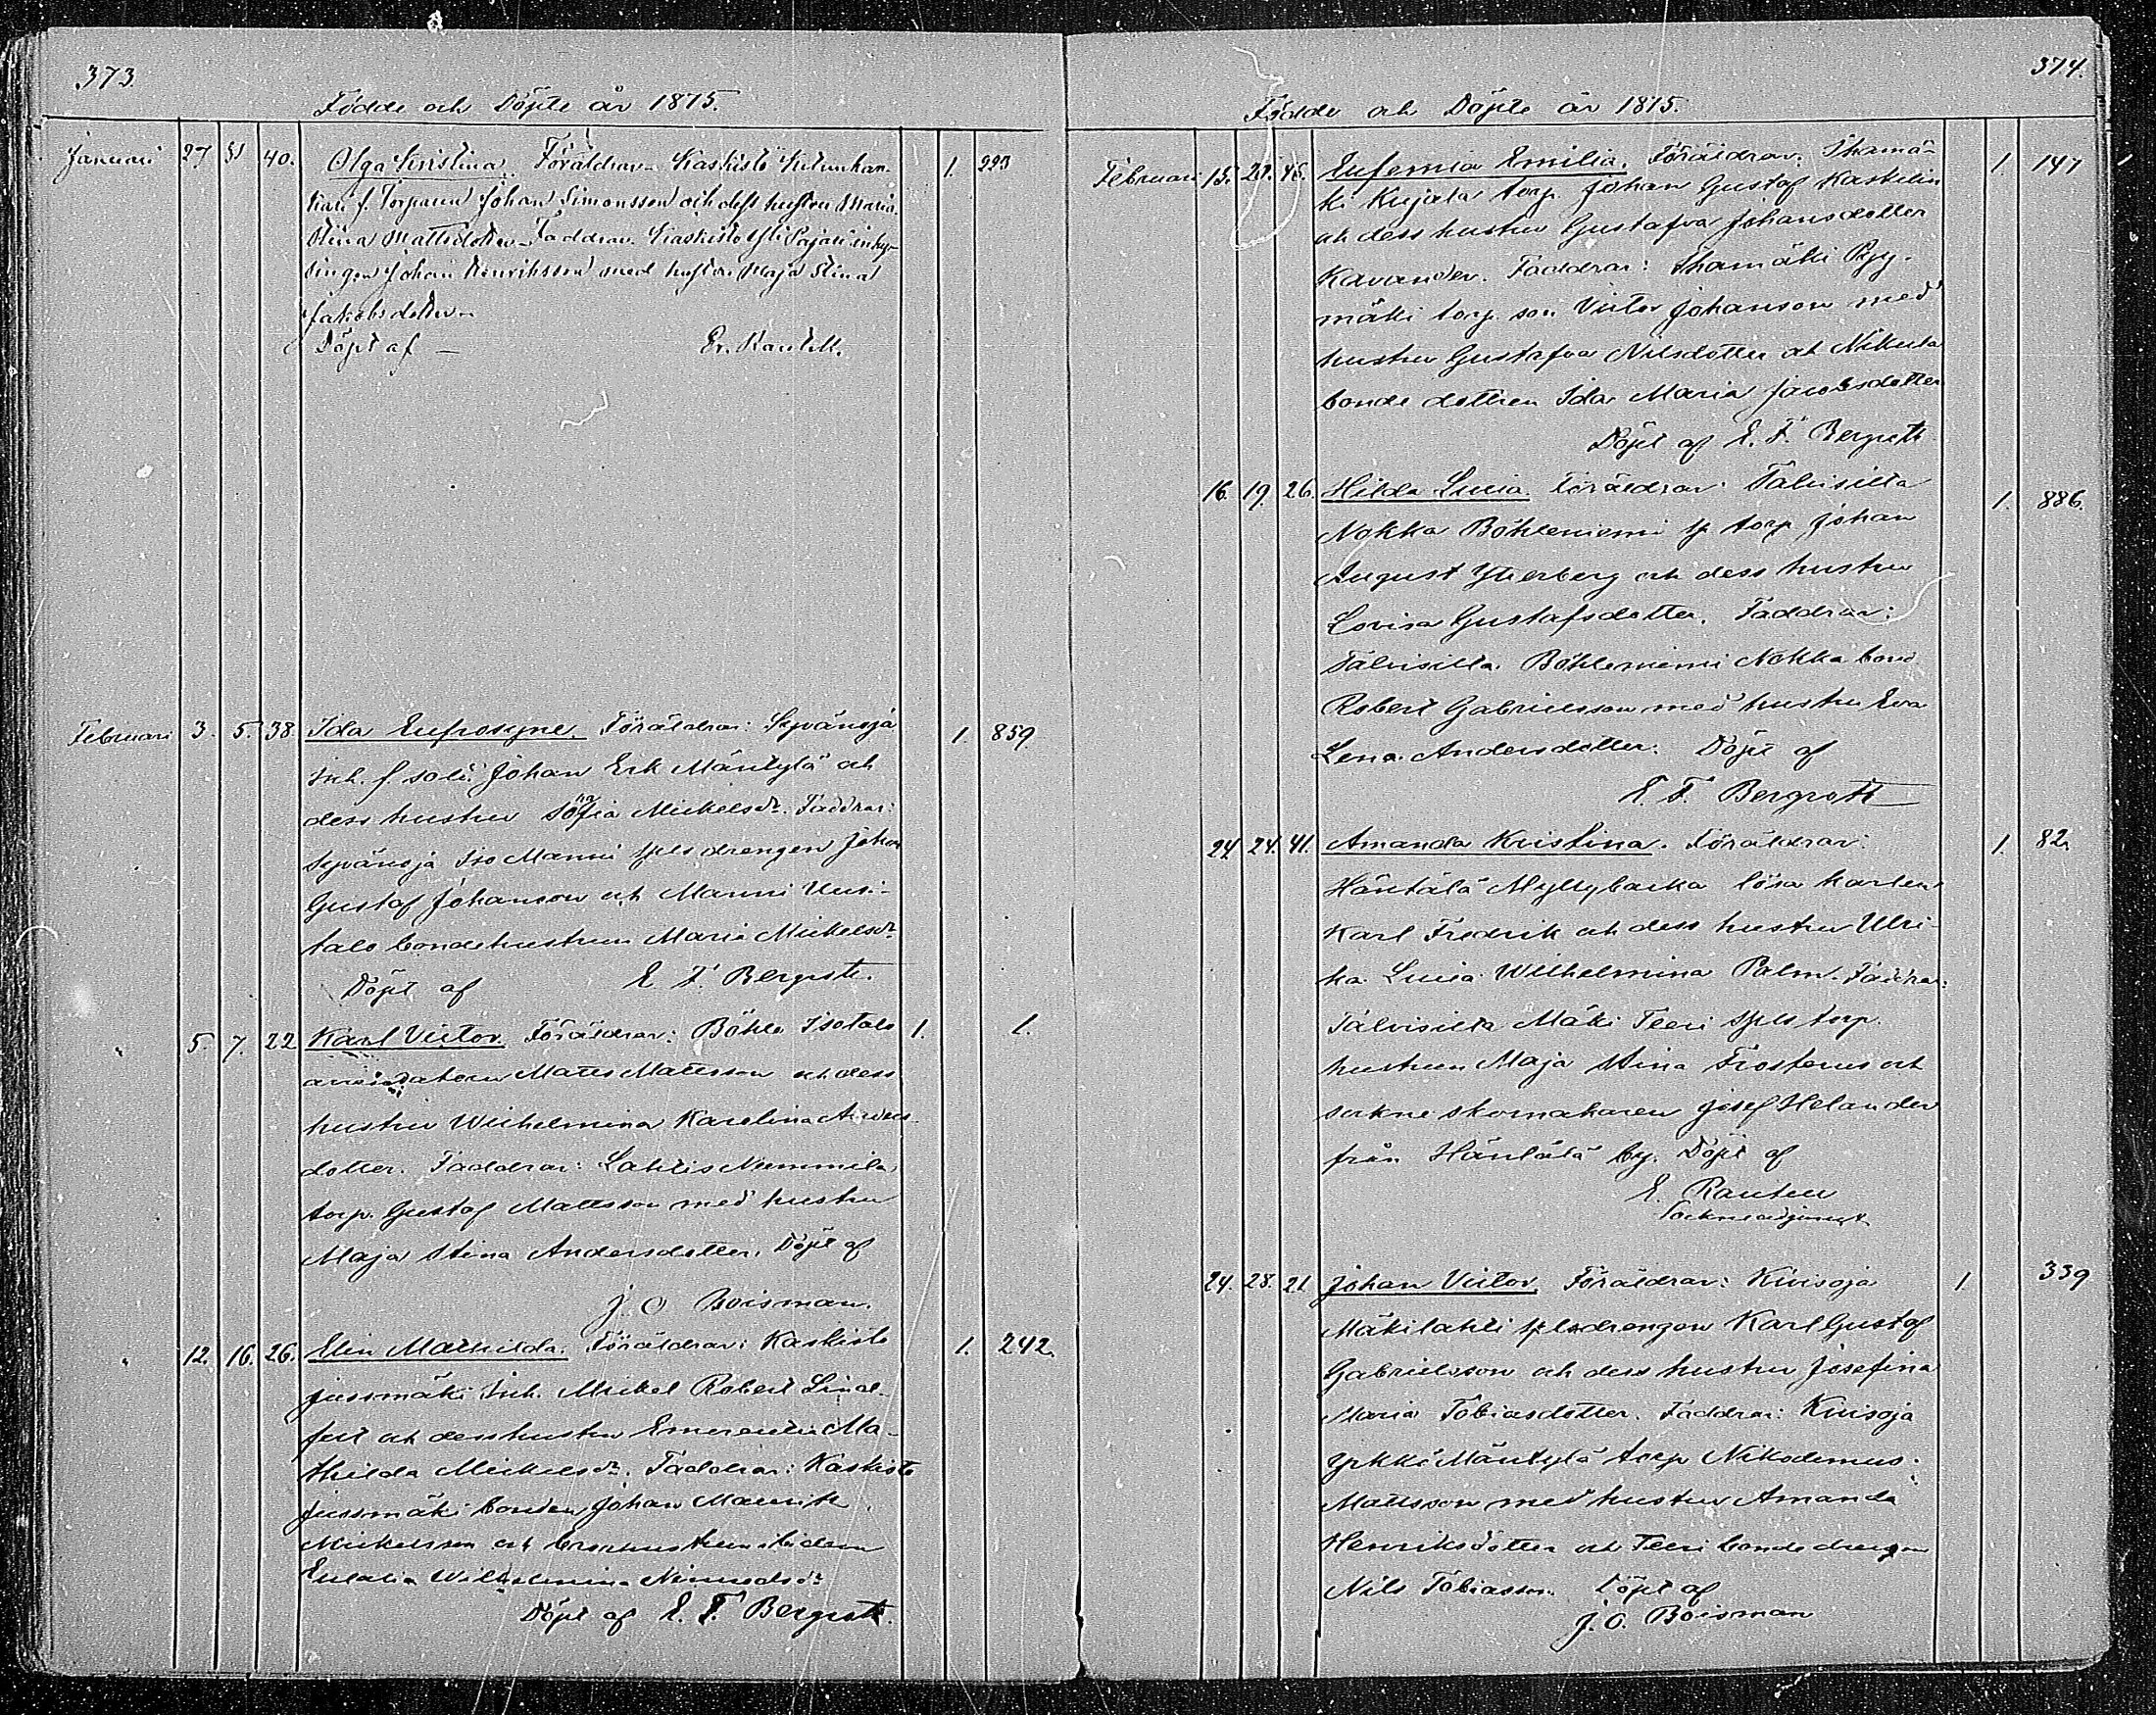 373.
Födde och Döpte år 1875.
Januari 27 31 40. Olga Kristina. Föräldrar Kaskisto
kari f. Torparen Johan Simonsson och dess hustru Maria
Stina Mattsdotter. Faddrar. Kaskisto Yli Pajari inhy-
singen Johan Henriksson med hustru Maja Stina
Jakobsdotter. 1. 223
Döpt af — Er. Rautell.
Februari 3. 5. 38. Ida Eufrosyne. Föräldrar: Syvänoja 1. 859.
inh. f. sold. Johan Erik Mäntylä och
dess hustru Sofia Mickelsdr. Faddrar:
Syvänoja Iso Manni spls drengen Johan
Gustaf Johanson och Manni Uusi-
talo bondehustrun Maria Mickelsdr
Döpt af E. F. Bergroth.
5. 7. 22 Karl Victor. Föräldrar: Böhle Isotalo 1. 1.
arrendatorn Matts Mattsson och dess
hustru Wilhelmina Karolina
dotter. Faddrar: Lahtis Nummila
torp. Gustaf Mattsson med hustru
Maja Stina Andersdotter. Döpt af
J. O. Boisman.
12. 16. 26. Elin Mathilda. Föräldrar: Kaskisto 1. 242.
Jussmäki Inh. Mickel Robert Lind-
och dess hustru Emerentia Ma-
thilda Mickelsdr. Faddrar: Kaskisto
Jussmäki bonden Johan Maurits
Mickelsson och ibidem
Eulalia Wilhelmina
Döpt af E. F. Bergroth.
374.
Födde och Döpte år 1875.
Februari 15. 21. 45. Eufemia Emilia. Föräldrar: Ihamä- 1. 147
ki Kujala torp. Johan Gustaf Kaskelin
och dess hustru Gustafva Johansdotter
Kavander. Faddrar: Ihamäki Pyy-
mäki torp. son Victor Johanson med
hustru Gustafva Nilsdotter och Nikula
bonde dottren Ida Maria Jacobsdotter
Döpt af E. F. Bergroth
16. 19. 26. Hilda Lucia. Föräldrar: Talvisilta 1. 886.
Nokka Böhleniemi sp torp Johan
August Ytterberg och dess hustru
Lovisa Gustafsdotter. Faddrar:
Talvisilta Böhleniemi Nokka bond
Robert Gabrielsson med hustru Eva
Lena Andersdotter. Döpt af
E. F. Bergroth
24 24. 41. Amanda Kristina. Föräldrar: 1. 82.
Häntälä Myllybacka lösa karlen
Karl Fredrik och dess hustru Ulri-
ka Lucia Wilhelmina Palm. Faddrar:
Talvisilta Mäki Teeri spls torp.
hustrun Maja Stina Frosterus och
sockne skomakaren Josef Helander
från Häntälä by. Döpt af
E. Rautell
Sockneadjunkt
24. 28. 21. Johan Victor. Föräldrar: Kivisoja 1. 339
Mäkilahti splsdrengen Karl Gustaf
Gabrielsson och dess hustru Josefina
Maria Tobiasdotter. Faddrar: Kivisoja
Yrkki Mäntylä torp Nikodemus
Mattsson med hustru Amanda
Henriksdotter och Teeri bonde drengen
Nils Tobiasson. Döpt af
J. O. Boisman